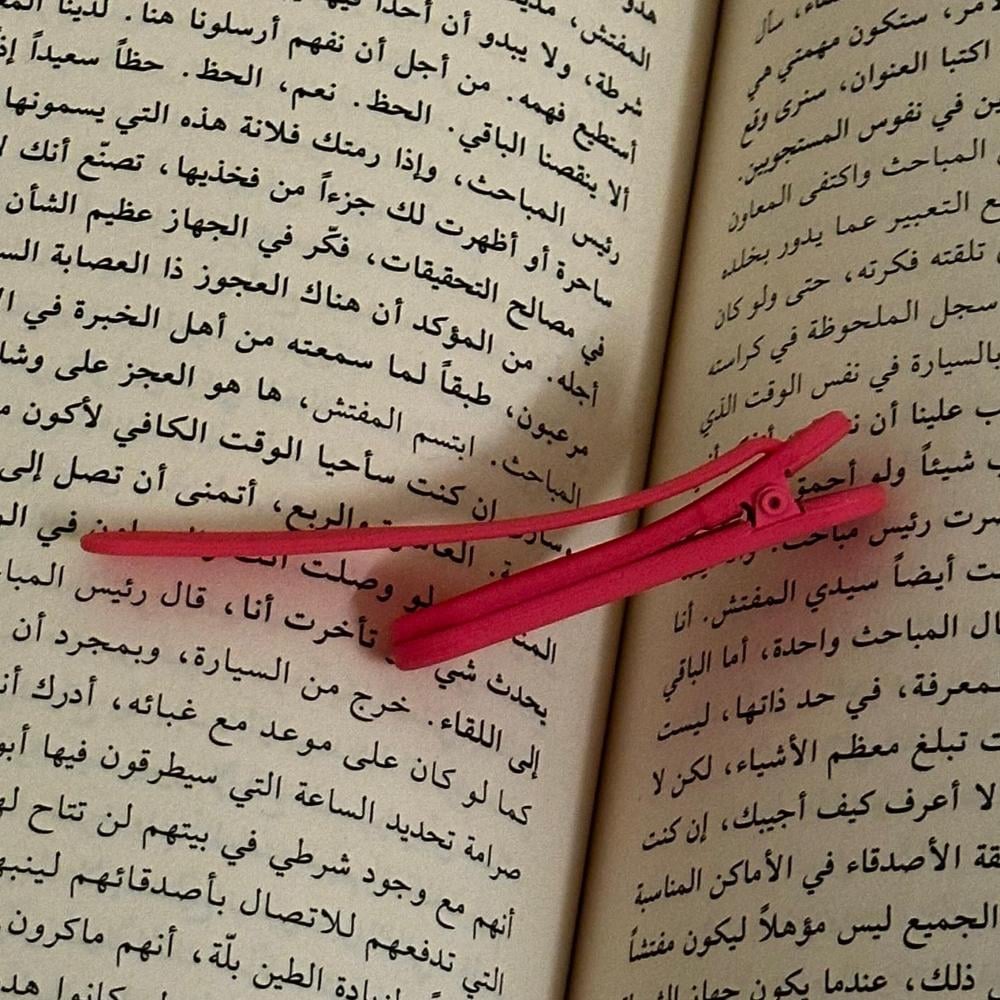 سأل
ستكون مهمتي هي
اكتبا العنوان، سنرى وقع
في نفوس المستجوبين.
المباحث واكتفى المعاون
التعبير عما يدور بخلده
تلقته فكرته، حتى ولو كان
سجل الملحوظة في كراسته
بالسيارة في نفس الوقت الذي
علينا أن
شيئاً ولو أحمق
رئيس مباحث
أيضاً سيدي المفتش. أنا
المباحث واحدة، أما الباقي
في حد ذاتها، ليست
تبلغ معظم الأشياء، لكن لا
لا أعرف كيف أجيبك، إن كنت
الأصدقاء في الأماكن المناسبة
الجميع ليس مؤهلاً ليكون مفتشاً
ذلك، عندما يكون جهاز
المفتش،
شرطة، ولا يبدو أن أحداً
أستطيع فهمه. من أجل أن نفهم أرسلونا هنا. لدينا
ألا ينقصنا الباقي. الحظ. نعم، الحظ. حظاً سعيداً
رئيس المباحث، وإذا رمتك فلانة هذه التي يسمونها
ساحرة أو أظهرت لك جزءاً من فخذيها، تصنّع أنك
في مصالح التحقيقات، فكّر في الجهاز عظيم الشأن
أجله. من المؤكد أن هناك العجوز ذا العصابة
مرعبون، طبقاً لما سمعته من أهل الخبرة في
المباحث. ابتسم المفتش، ها هو العجز على
إن كنت سأحيا الوقت الكافي لأكون
والربع، أتمنى أن تصل إلى
لو وصلت أنت في
يحدث تأخرت أنا، قال رئيس
إلى اللقاء. خرج من السيارة، وبمجرد أن
كما لو كان على موعد مع غبائه، أدرك
صرامة تحديد الساعة التي سيطرقون فيها
أنهم مع وجود شرطي في بيتهم لن تتاح
التي تدفعهم للاتصال بأصدقائهم
الطين بلّة، أنهم ماكرون
كانوا